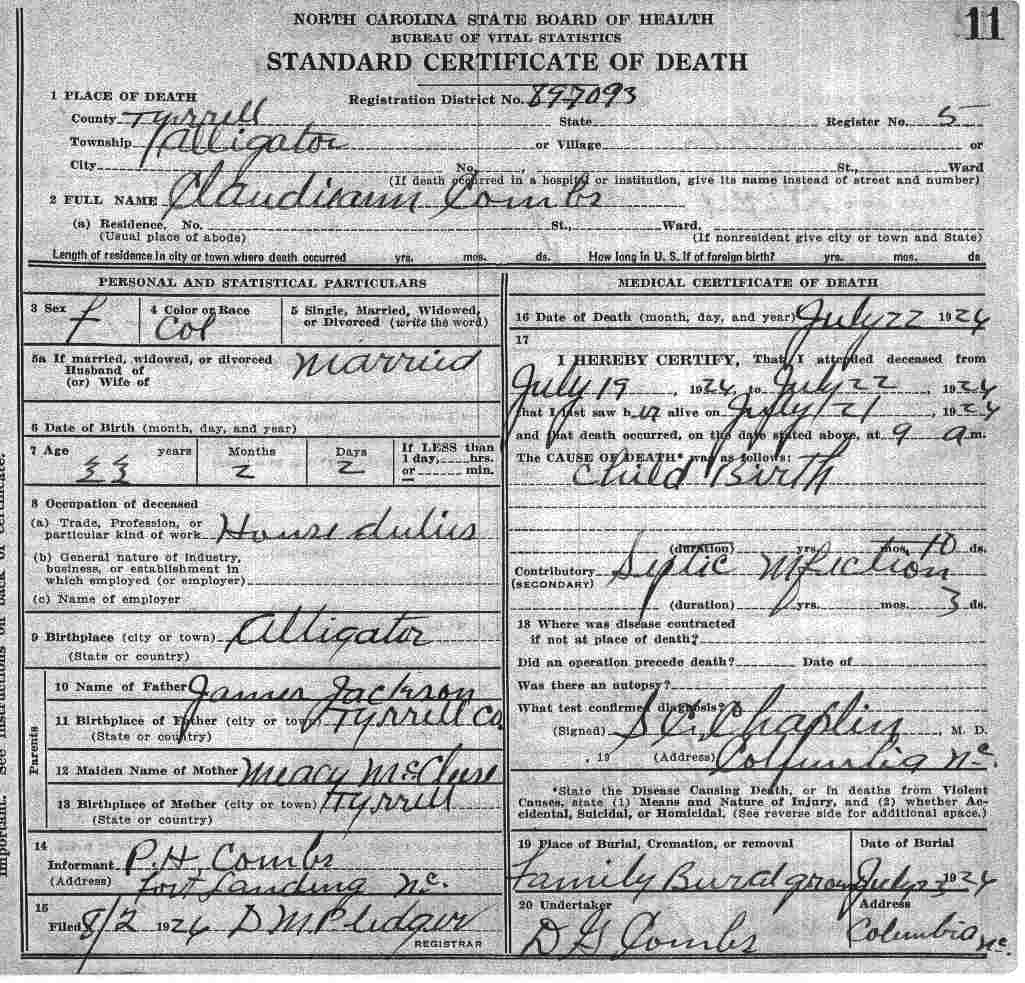 NORTH CAROLINA STATE BOARD OF HEALTH
BUREAU OF VITAL STATISTICS
STANDARD CERTIFICATE OF DEATH
11
1 PLACE OF DEATH
Registration District No. 897093
County Tyrrell State Register No. 5
Township Alligator or Village or
City No. , St., Ward
(If death occurred in a hospital or institution, give its name instead of street and number)
2 FULL NAME Claudieann Combs
(a) Residence, No. St., Ward,
(Usual place of abode) (If nonresident give city or town and State)
Length of residence in city or town where death occurred yrs. mos. ds. How long in U. S. if of foreign birth? yrs. mos. ds
PERSONAL AND STATISTICAL PARTICULARS
3 Sex f
4 Color or Race Col
5 Single, Married, Widowed,
or Divorced (write the word)
Married
5a If married, widowed, or divorced
Husband of
(or) Wife of
6 Date of Birth (month, day, and year)
7 Age 33 years 2 Months 2 Days
If LESS than
1 day, hrs.
or min.
8 Occupation of deceased
(a) Trade, Profession, or
particular kind of work House duties
(b) General nature of industry,
business, or establishment in
which employed (or employer)
(c) Name of employer
9 Birthplace (city or town) Alligator
(State or country)
Parents
10 Name of Father James Jackson
11 Birthplace of Father (city or town) Tyrrell Co
(State or country)
12 Maiden Name of Mother Meacy McCleese
13 Birthplace of Mother (city or town) Tyrrell
(State or country)
14
Informant P.H. Combs
(Address) Fort Landing N.C.
15
Filed 8/2 1924 D M Pledger
REGISTRAR
MEDICAL CERTIFICATE OF DEATH
16 Date of Death (month, day, and year) July 22 1924
17
I HEREBY CERTIFY, That I attended deceased from
July 19, 1924, to July 22, 1924
that I last saw her alive on July 21, 1924
and that death occurred, on the date stated above, at 9 a m.
The CAUSE OF DEATH* was as follows:
Child Birth
(duration) yrs. mos. 10 ds.
Contributory Septic Infection
(SECONDARY)
(duration) yrs. mos. 3 ds.
18 Where was disease contracted
if not at place of death?
Did an operation precede death? Date of
Was there an autopsy?
What test confirmed diagnosis?
(Signed) S C Chaplin, M. D.
, 19 (Address) Columbia N.C.
*State the Disease Causing Death, or in deaths from Violent
Causes, state (1) Means and Nature of Injury, and (2) whether Ac-
cidental, Suicidal, or Homicidal. (See reverse side for additional space.)
19 Place of Burial, Cremation, or removal Date of Burial
Family Burial ground July 23 1924
20 Undertaker Address
D G Combs Columbia N.C.
important. See instructions on back of certificate.